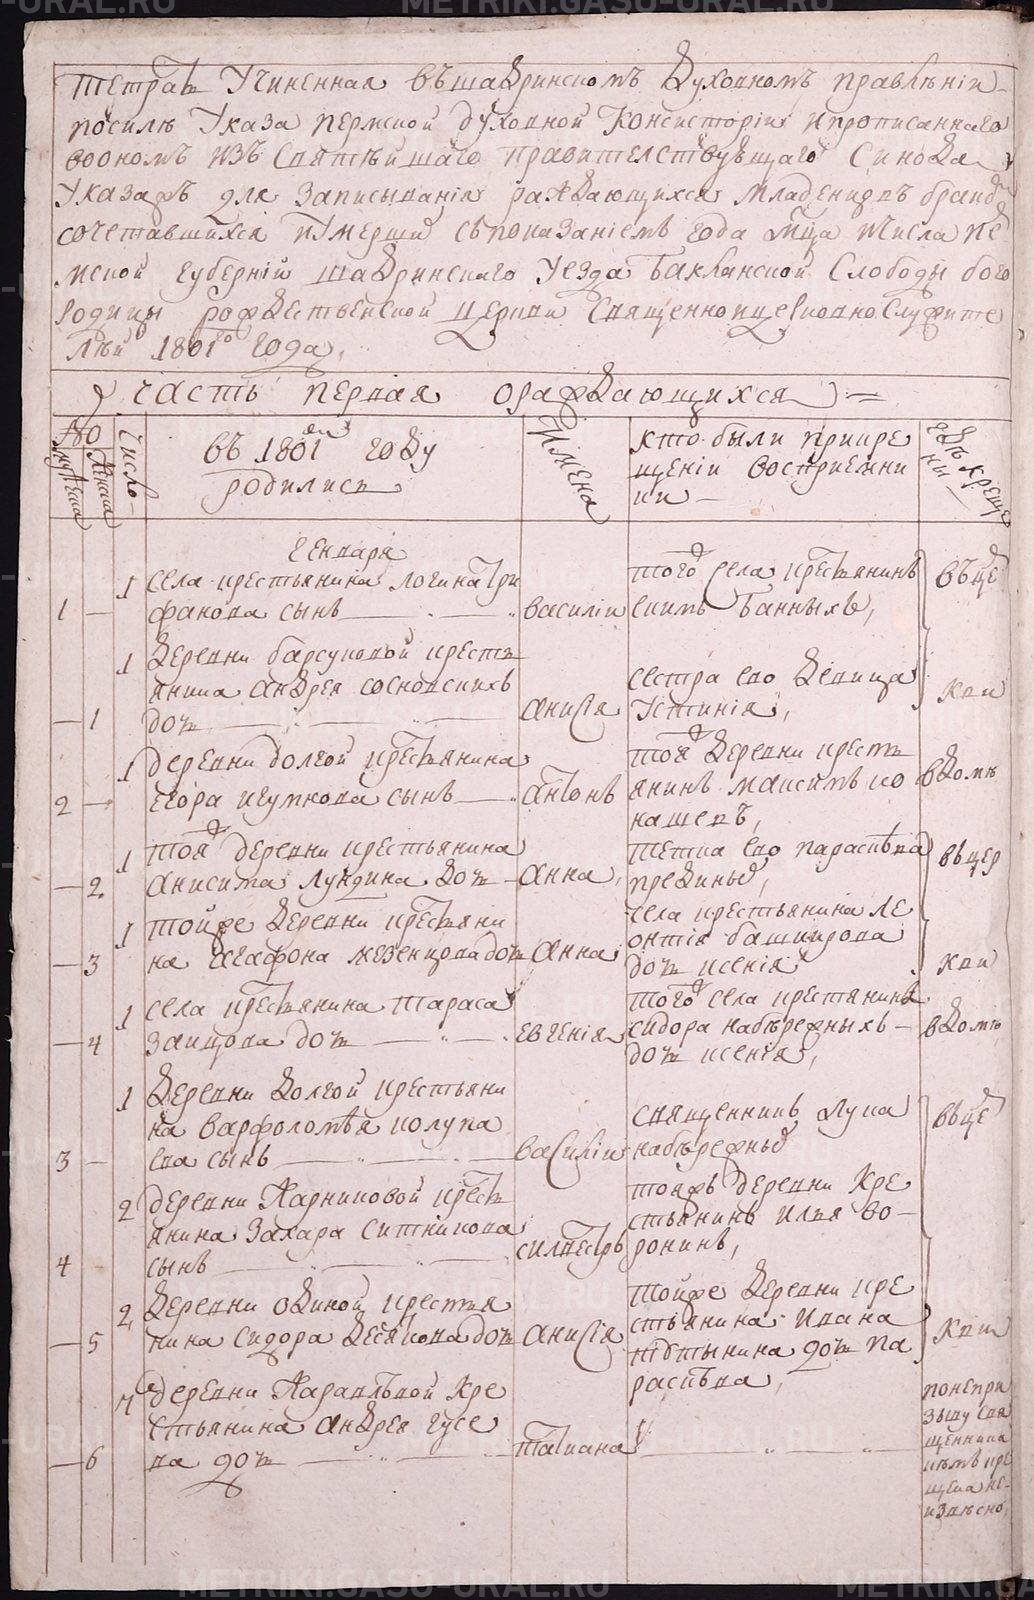 METRIKI.GASO-URAL.RU
Тетрать Учиненная въшадринскомъ Духовномъ правленіи
посилѣ Указа пермской духовной Консисторіи ипрописаннаго
воономъ изъ Святѣйшаго правителствующаго Синода
Указахъ для Записыванія раждающихся младенцовъ бракѡ
сочетавшихся иумерши съпоказаніемъ года мца числа пе
мской губерніи шадринскаго уезда Бакланской Слободы бого
родицы рождественской церкви Священноицерковнослужите
лѣй 1801го года,
часть первая ораждающихся
No
мужеска
женска
Число
въ 1801м году
родились
Имена
кто были прикре
щеніи восприемни
ки
гдѣ креще
ни
Генваря
1 — 1 села крестьянина логина три
фанова сынъ — василіи
того села крестьянинъ
екимъ Банныхъ,
въце
— 1 1 Деревни барсуковой кресть
янина андрея сосновскихъ
дочь — анисія
сестра ево девица
Устинія,
кви
2 — 1 деревни долгой крестьянина
егора игумнова сынъ — антонъ
той деревни кресть
янинъ максимъ ио
нашевъ,
вдомѣ
— 2 1 той деревни крестьянина
аникита лундина дочь — анна,
тетка ево параскѣва
предины,
въцер
— 3 1 тойже деревни крестьяни
на агафона мезенцова дочь анна
села крестьянина ле
онтія башкирова
дочь ксенія
кви
— 4 1 села крестьянина тараса
заицова дочь — евгенія
того села крестянина
сидора набережныхъ —
дочь ксенія,
вдомѣ
3 — 1 Деревни долгой крестьяни
на варфоломѣя колупа
ева сынъ — василіи
священникъ лука
набѣрежны
въце
4 2 деревни Парниковой кресть
янина Захара ситникова
сынъ — силвестръ
тоижъ деревни кре
стьянинъ илья во—
ронинъ,
— 5 2 деревни одиной крестья
нина сидора десяткова дочь анисія
тойже деревни кре
стьянина ивана
дочь па
раскѣва,
кви
— 6 7 деревни Каравлѣвой кре
стьянина андрея гусе
ва дочь — татиана
понепри
зыву свя
щенника
кѣмъ кре
щена не—
извѣсно,
METRIKI.GASO-URAL.RU